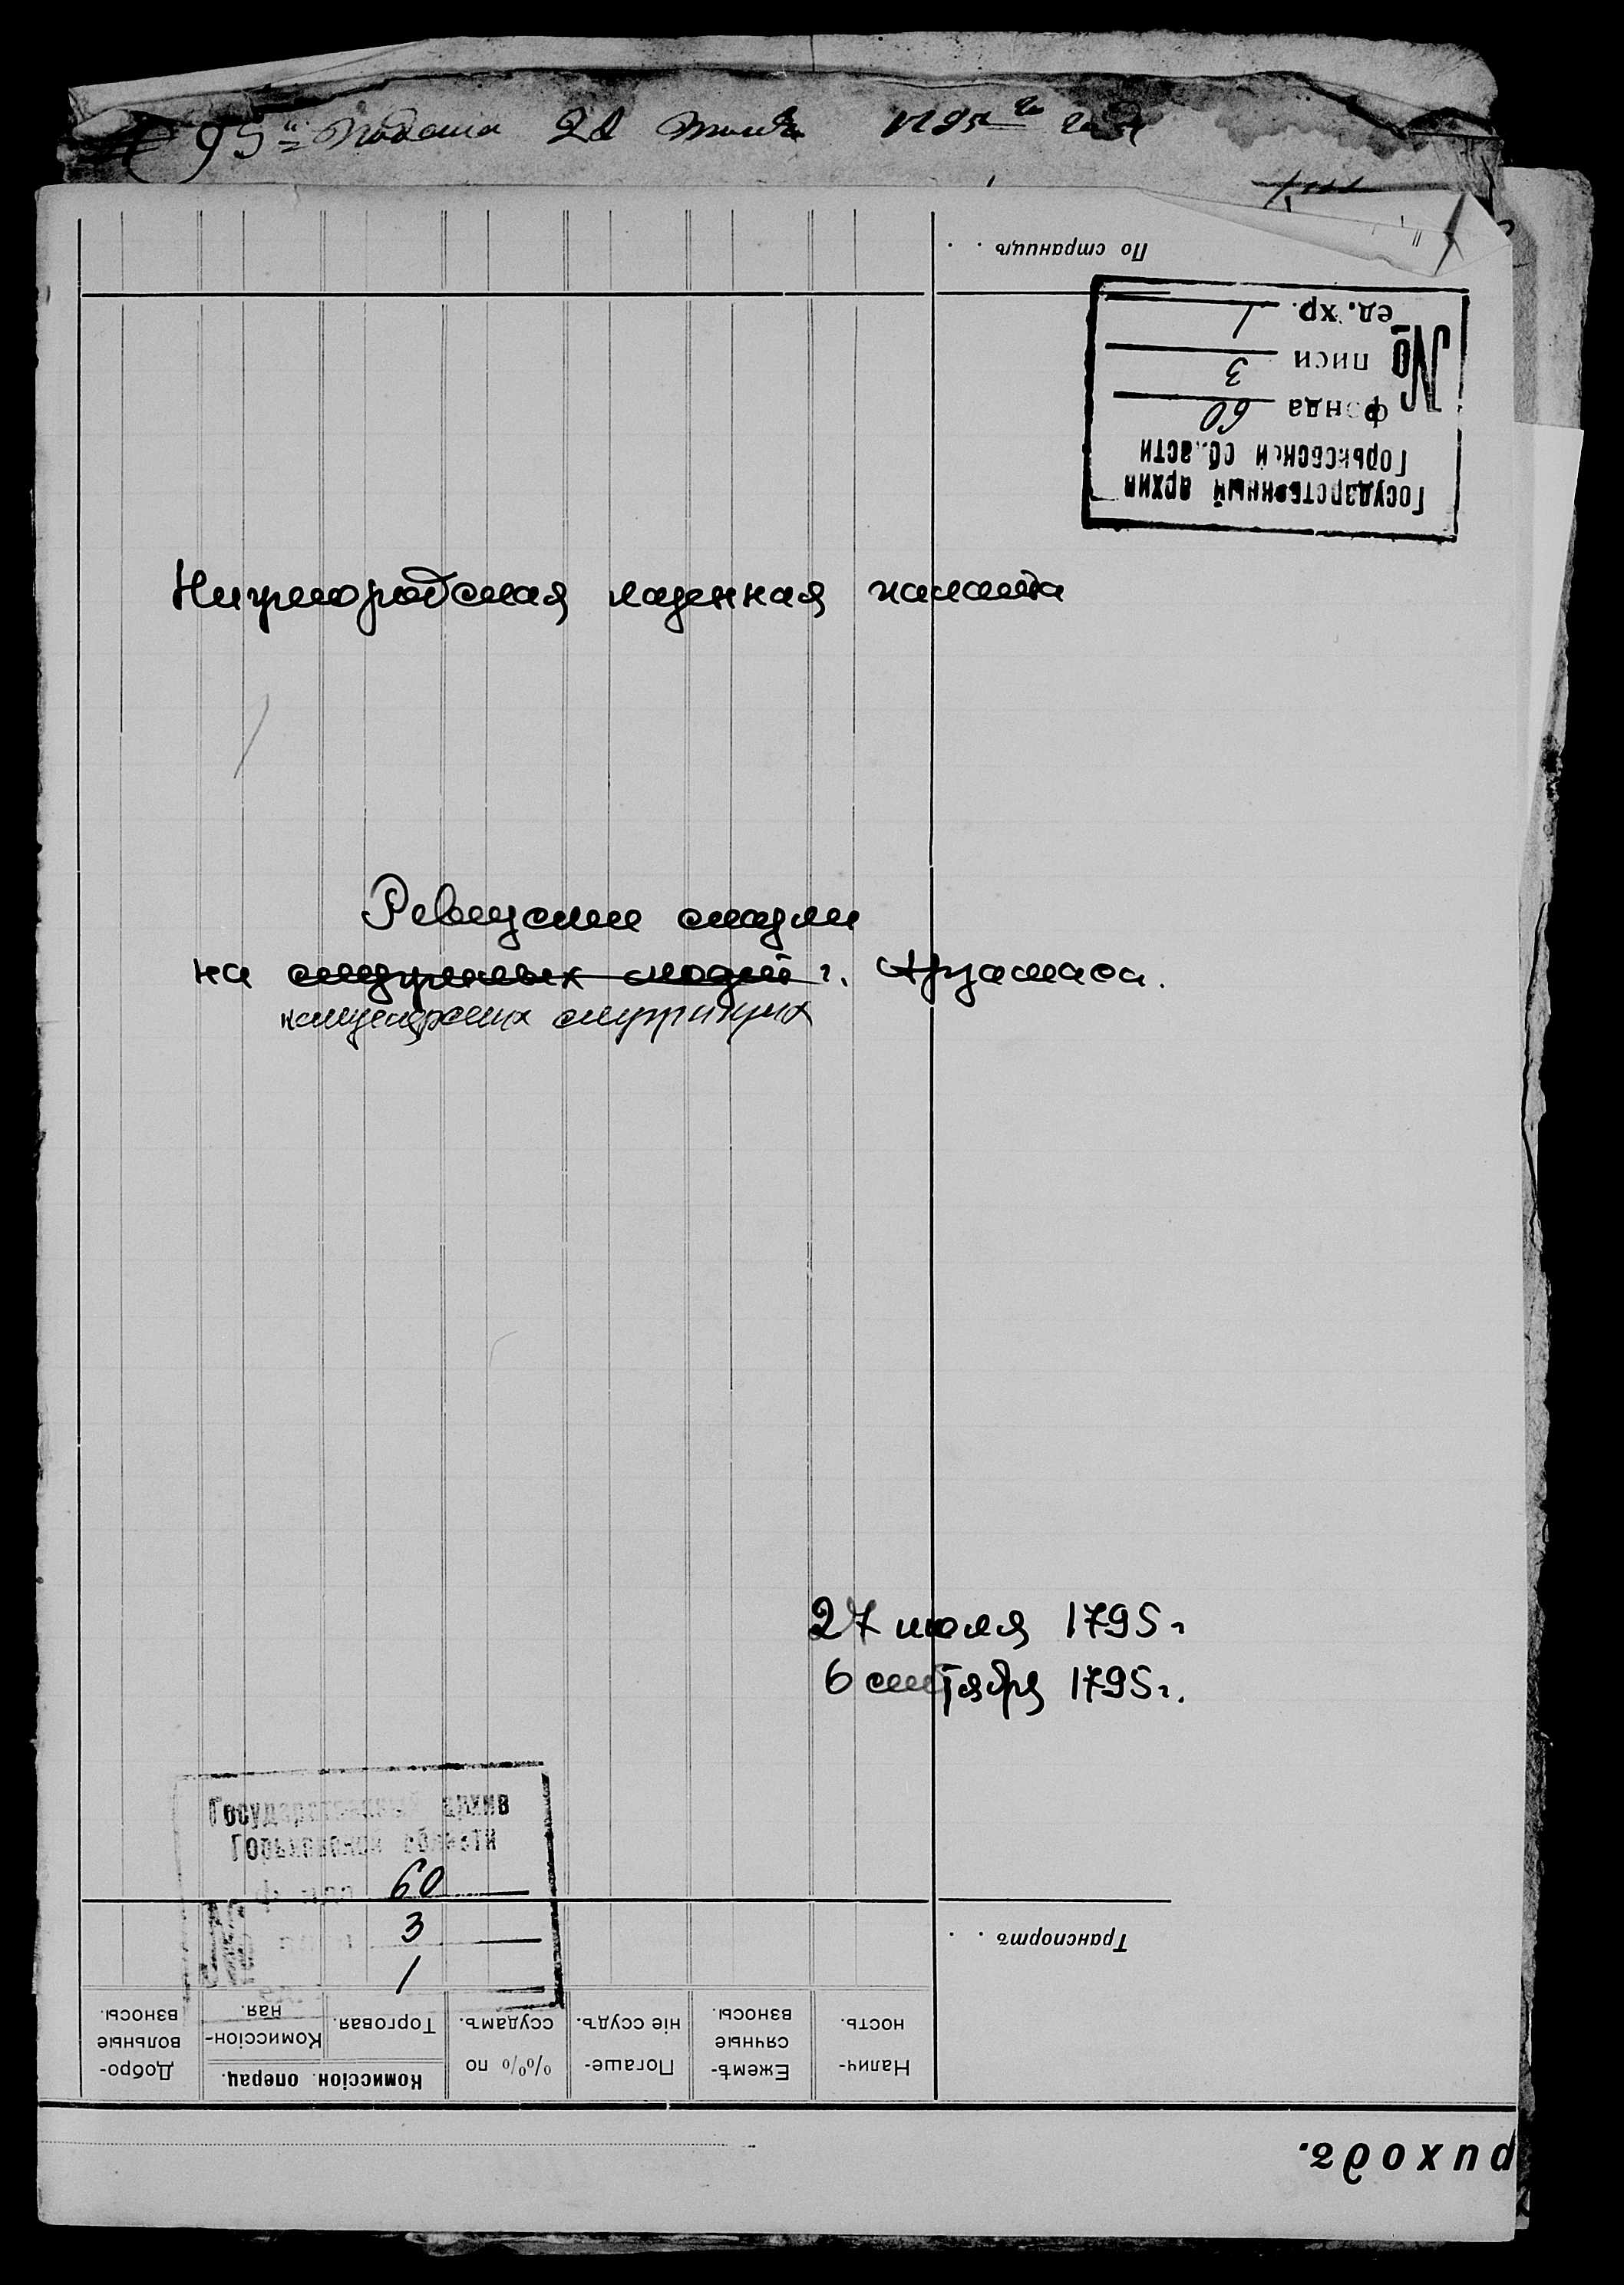 95 Подана 22 Июля 1795 го года
По страницѣ . .
ед. хр. 1
№ писи 3
фонда 60
Горьковской области
Государственный архив
Нижегородская казенная палата
Ревизские сказки
на г. Арзамаса.
канцелярских служащих
27 июля 1795 г
6 сентября 1795 г.
Государственный архив
Горьковской области
60
№ 3
1
Транспортъ . .
Налич-ность.
Ежемѣ-сячные взносы.
Погаше-ніе ссудъ.
%% по ссудамъ.
Комиссіон. операц.
Торговая.
Комиссіон-ная.
Добро-вольные взносы.
риходъ.